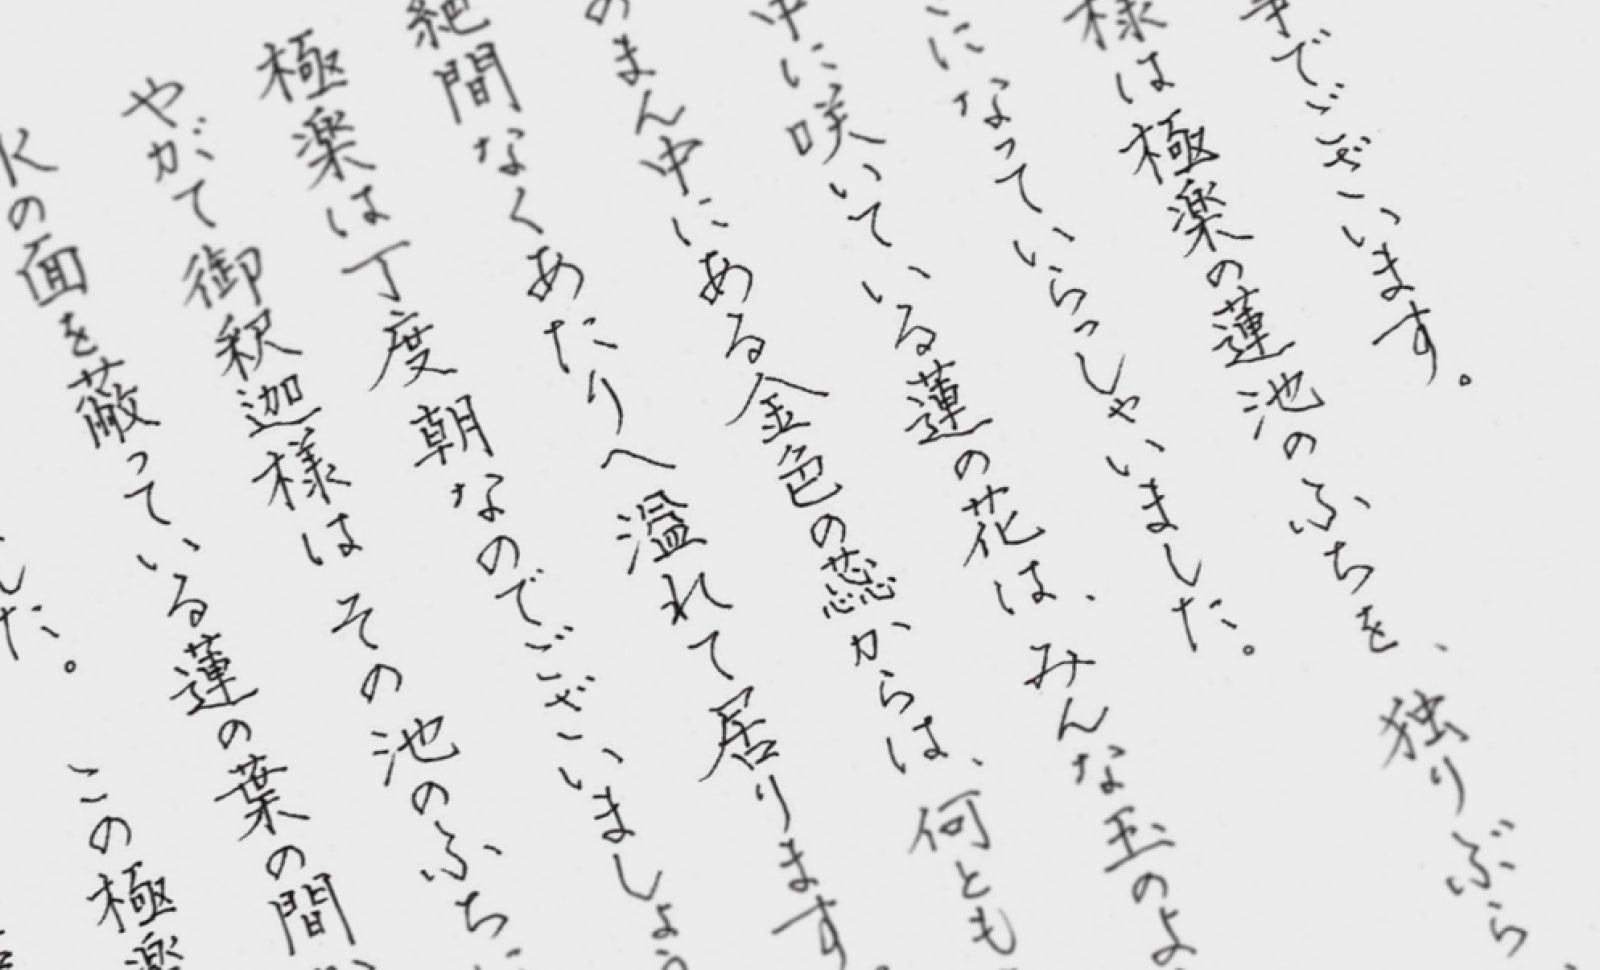 事でございます。
様は極楽の蓮池のふちを、独りぶら
になっていらっしゃいました。
中に咲いている蓮の花は、みんな玉のよ
のまん中にある金色の蕊からは、何とも
絶間なくあたりへ溢れて居ります。
極楽は丁度朝なのでございましょう
やがて御釈迦様はその池のふち
水の面を蔽っている蓮の葉の間
した。この極楽